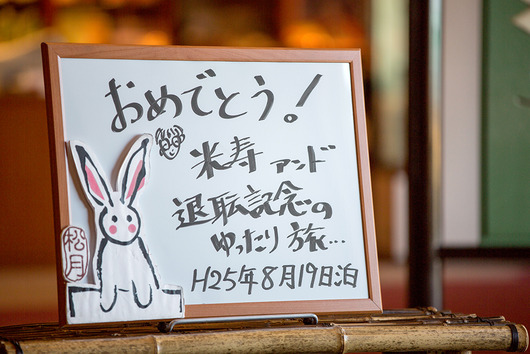 おめでとう!
米寿 アンド
退職記念の
ゆったり旅…
H25年8月19日泊
松月